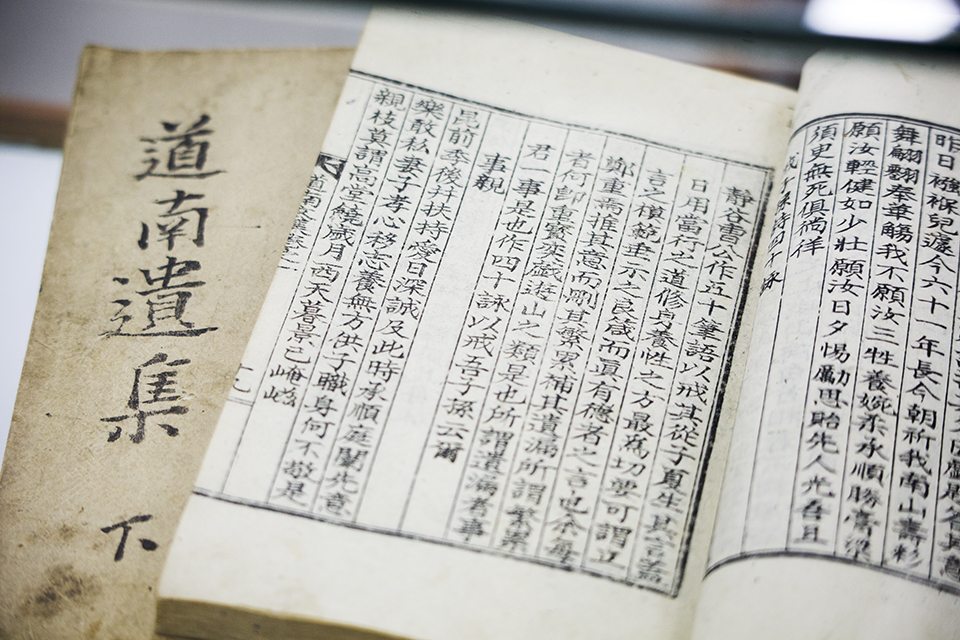 昨日襁褓兒遽今六十一年長今朝祈我南山壽彩
舞翩翻奉華觴我不願汝三牲養婉柔承順勝膏粱
願汝輕健如少壯願汝日夕惕勵思貽先人光吾且
須臾無死俱徜徉
子詩四十詠
靜谷曹公作五十筆語以戒其從子夏生其言蓋
日用當行之道修身養性之方最爲切要可謂立
言之模範垂示之良箴而眞有德者之言也余每
鄭重焉推其意而刪其繁累補其遺漏所謂繁累
者何卽重繁奕戲遊山之類是也所謂遺漏者事
君一事是也作四十詠以戒吾子孫云爾
事親
昆前季後幷扶持愛日深誠及此時承順庭闈先意
樂敢私妻子孝心移志養無方供子職身何不敬是
親枝莫謂高堂饒歲月西天暮景已崦嵫
道南遺集卷二
十九
道南遺集 下